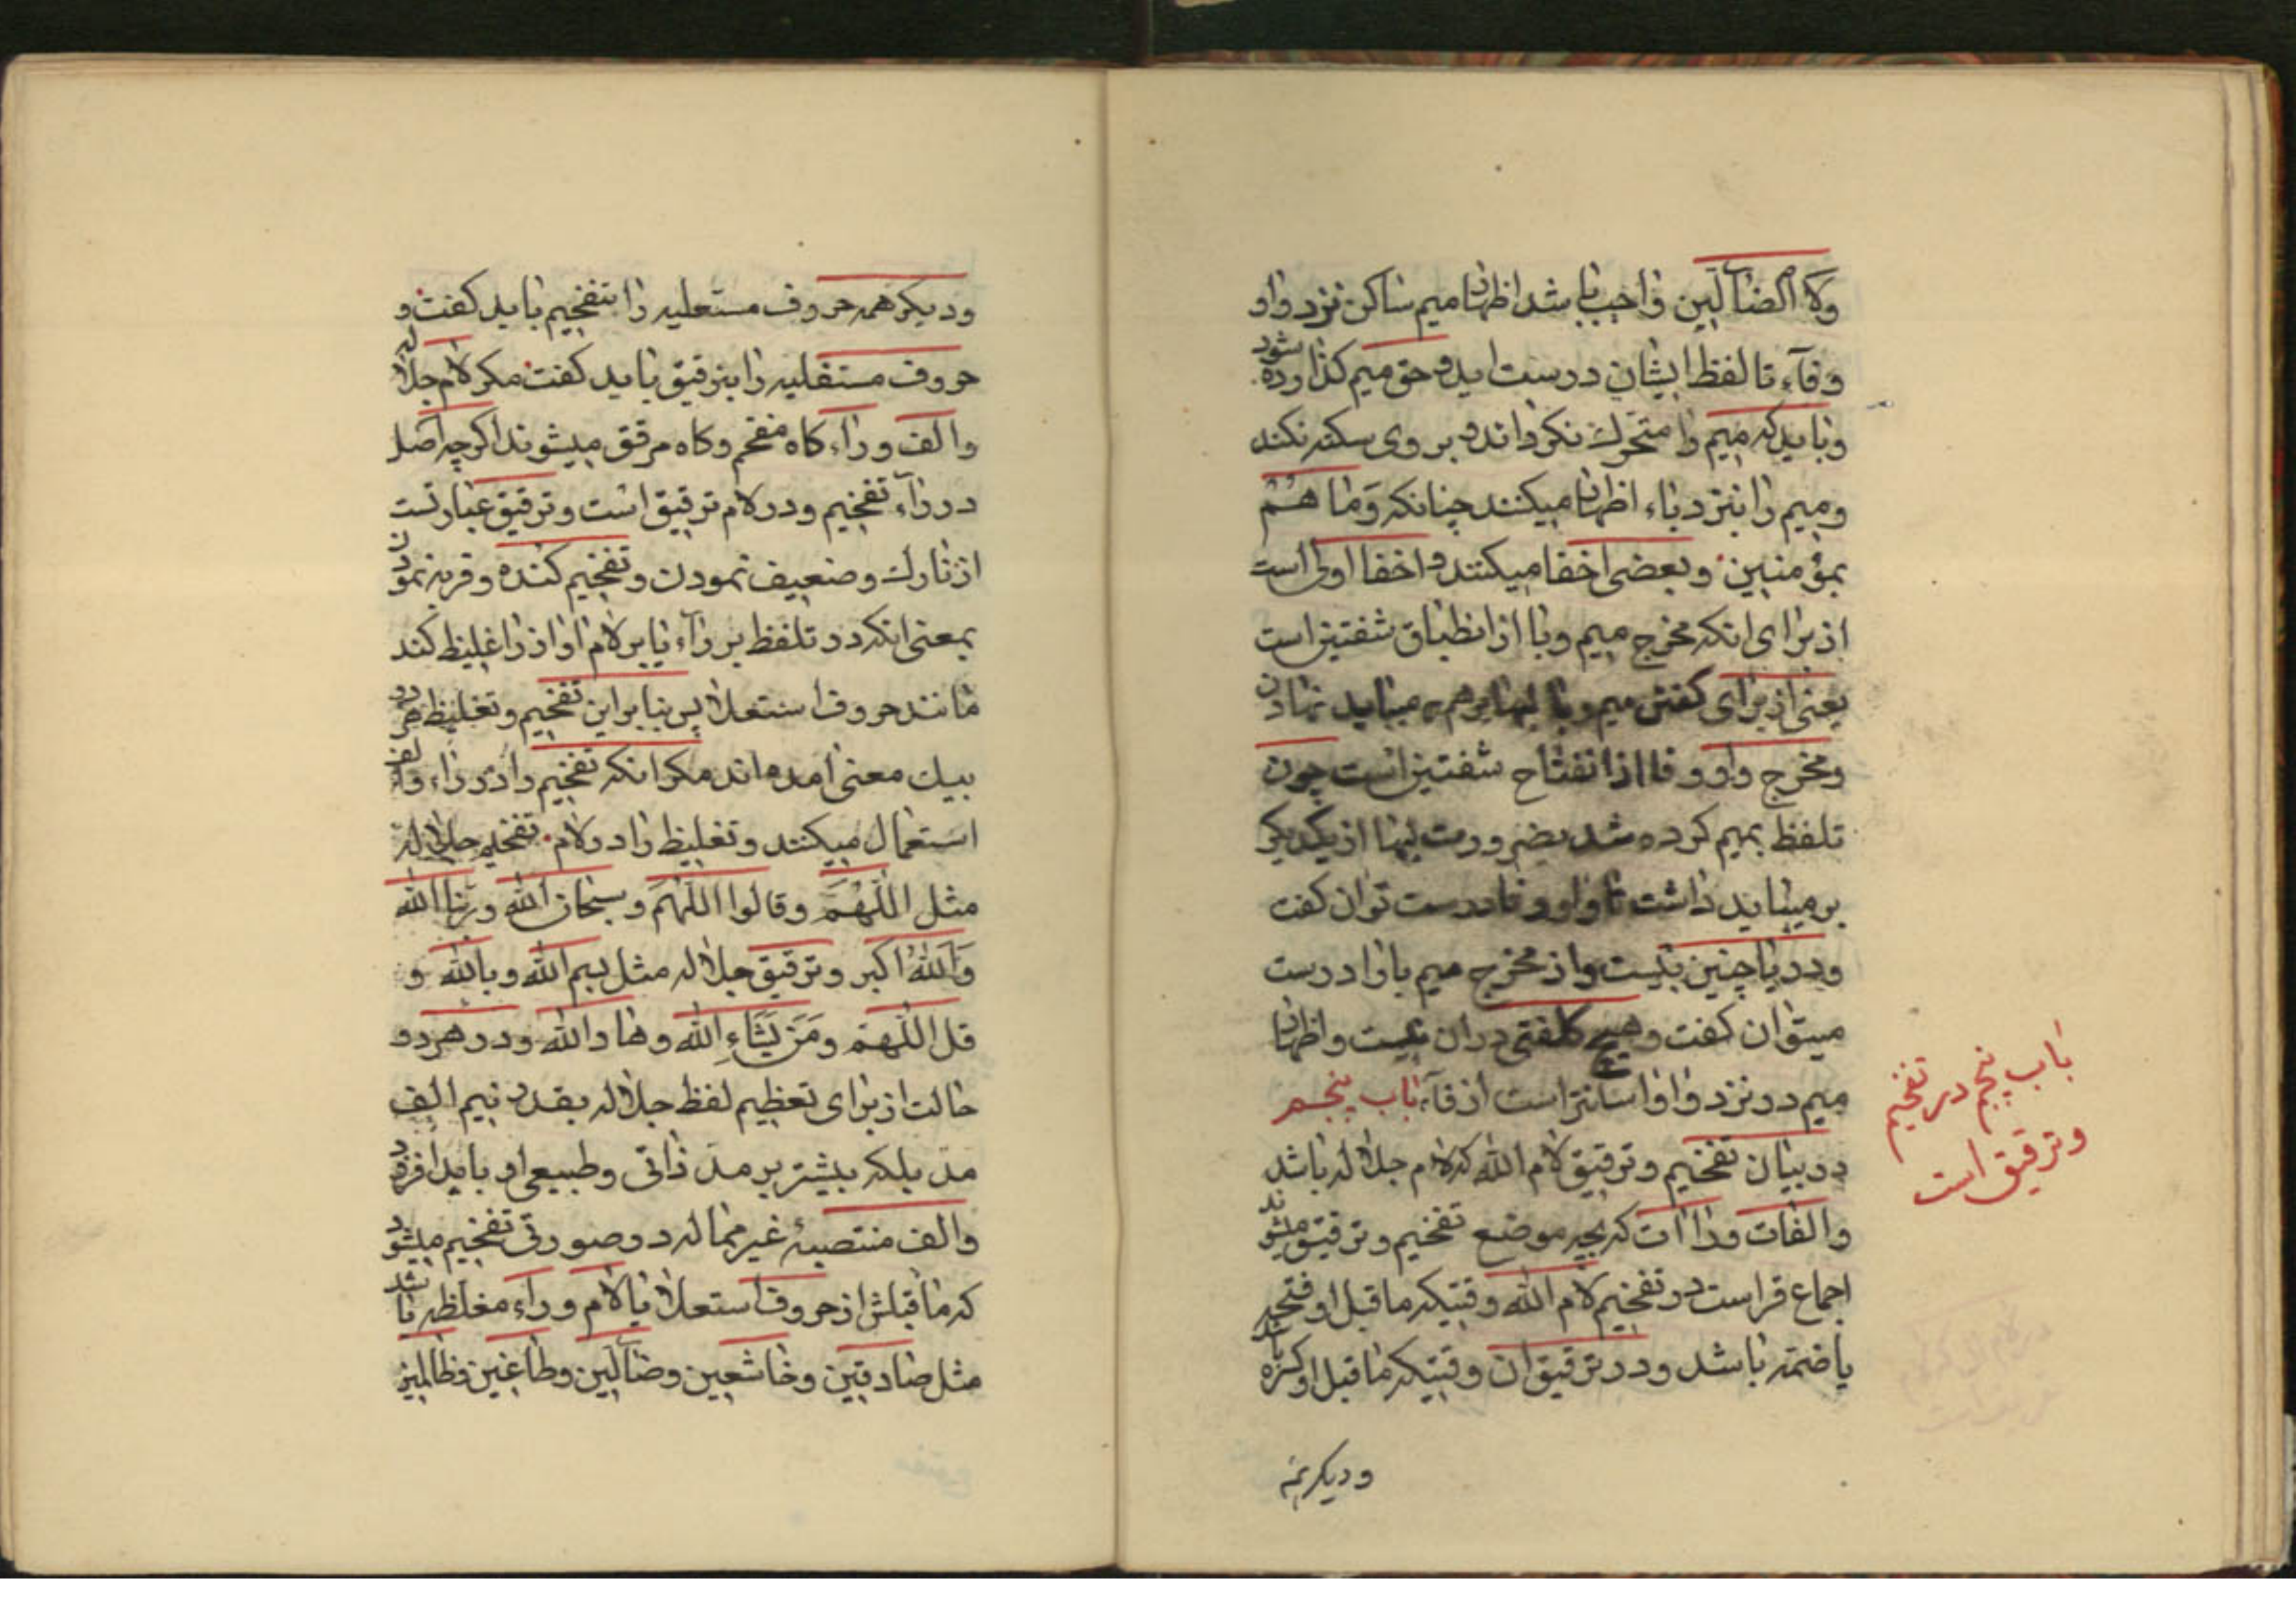 ولا الضآلین واجب باشد اظهار میم ساکن نزد واو
وفآء تا لفظ ایشان درست اید و حق میم کذاورده شود
و باید که میم را متحرک نکرداند و بر وی سکته نکند
و میم را بنزد باء اظهار میکنند چنانکه وَمٰا هُمْ
بمؤمنین و بعضی اخفا میکنند و اخفا اولی است
از برای انکه مخرج میم و با از انطباق شفتین است
یعنی از برای کفتن میم و با لبها برهم میباید نهادن
و مخرج واو و فا از انفتاح شفتین است چون
تلفظ بمیم کرده شد بضرورت لبها از یکدیکر
بر میباید داشت تا واو و فا درست توان کفت
و در با چنین نیست و از مخرج میم با را درست
میتوان کفت و هیچ کلفتی دران نیست و اظهار
میم در نزد واو اسانتر است از فآء باب پنجم
در بیان تفخیم و ترقیق لام الله که لام جلاله باشد
و الفات و راات که بچه موضع تفخیم و ترقیق میشوند
اجماع قراست در تفخیم لام الله وقتیکه ماقبل او فتحه
یا ضمّه باشد و در ترقیق ان وقتیکه ماقبل او کسره باشد
باب پنجم در تفخیم
و ترقیق است
و دیکر همه
و دیکر همه حروف مستعلیه را بتفخیم باید کفت و
حروف مستفلیه را بترقیق باید کفت مکر لام جلاله
و الف و راء کاه مفخم و کاه مرقق میشوند اکرچه اصل
در رآء تفخیم و در لام ترقیق است و ترقیق عبارتست
از نازک و ضعیف نمودن و تفخیم کنده و فربه نمودن
بمعنی انکه در تلفظ بر رآء یا بر لام اواز را غلیظ کند
مانند حروف استعلا پس بنا براین تفخیم و تغلیظ هر دو
بیک معنی امده اند مکر انکه تفخیم را در راء و الف
استعمال میکنند و تغلیظ را در لام تفخیم جلاله
مثل اللّهُمَّ و قالوا اللّهمَ و سبحان الله و ربنا الله
وَاللهُ اکبر و ترقیق جلاله مثل بسم الله و بالله و
قل اللّهمّ ومَن یَشَاءِ الله و ها والله و در هر دو
حالت از برای تعظیم لفظ جلاله بقدر نیم الف
مدّ بلکه بیشتر بر مدّ ذاتی و طبیعی او باید افزود
و الف منتصبهٔ غیر مماله در صورتی تفخیم میشود
که ماقبلش از حروف استعلا یا لام و راء مغلظه باشد
مثل صادقین و خاشعین و ضآلّین و طاغین و ظالمین